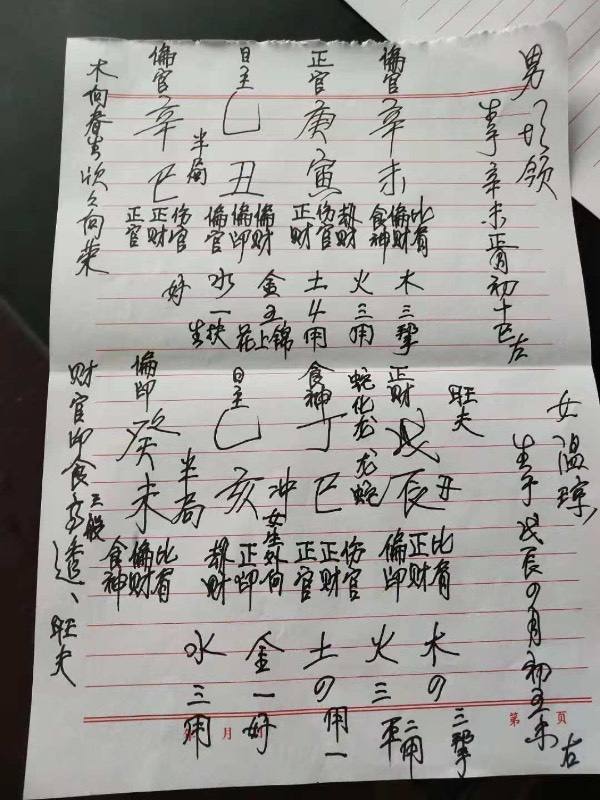 男
生于辛未正月初十巳 左
偏官 辛未
正官 庚寅
日主 己丑
半局
偏官 辛巳
木向春生欣欣向荣
比肩
偏财
食神
劫财
伤官
正财
偏财
偏印
偏官
伤官
正财
正官
木三
火三用
土4用
金五
水一
好
女温
生于戊辰4月初五未 左
旺夫
正财 戊辰
丑
蛇化龙龙蛇
食神 丁巳
冲女生外向
日主 己亥
半局
偏印 癸未
财官印食三般高透、旺夫
比肩
正财
偏印
伤官
正财
正官
正印
劫财
比肩
偏财
食神
木4三
火三 平 二用
土4用一
金一好
水三用
第 页
月